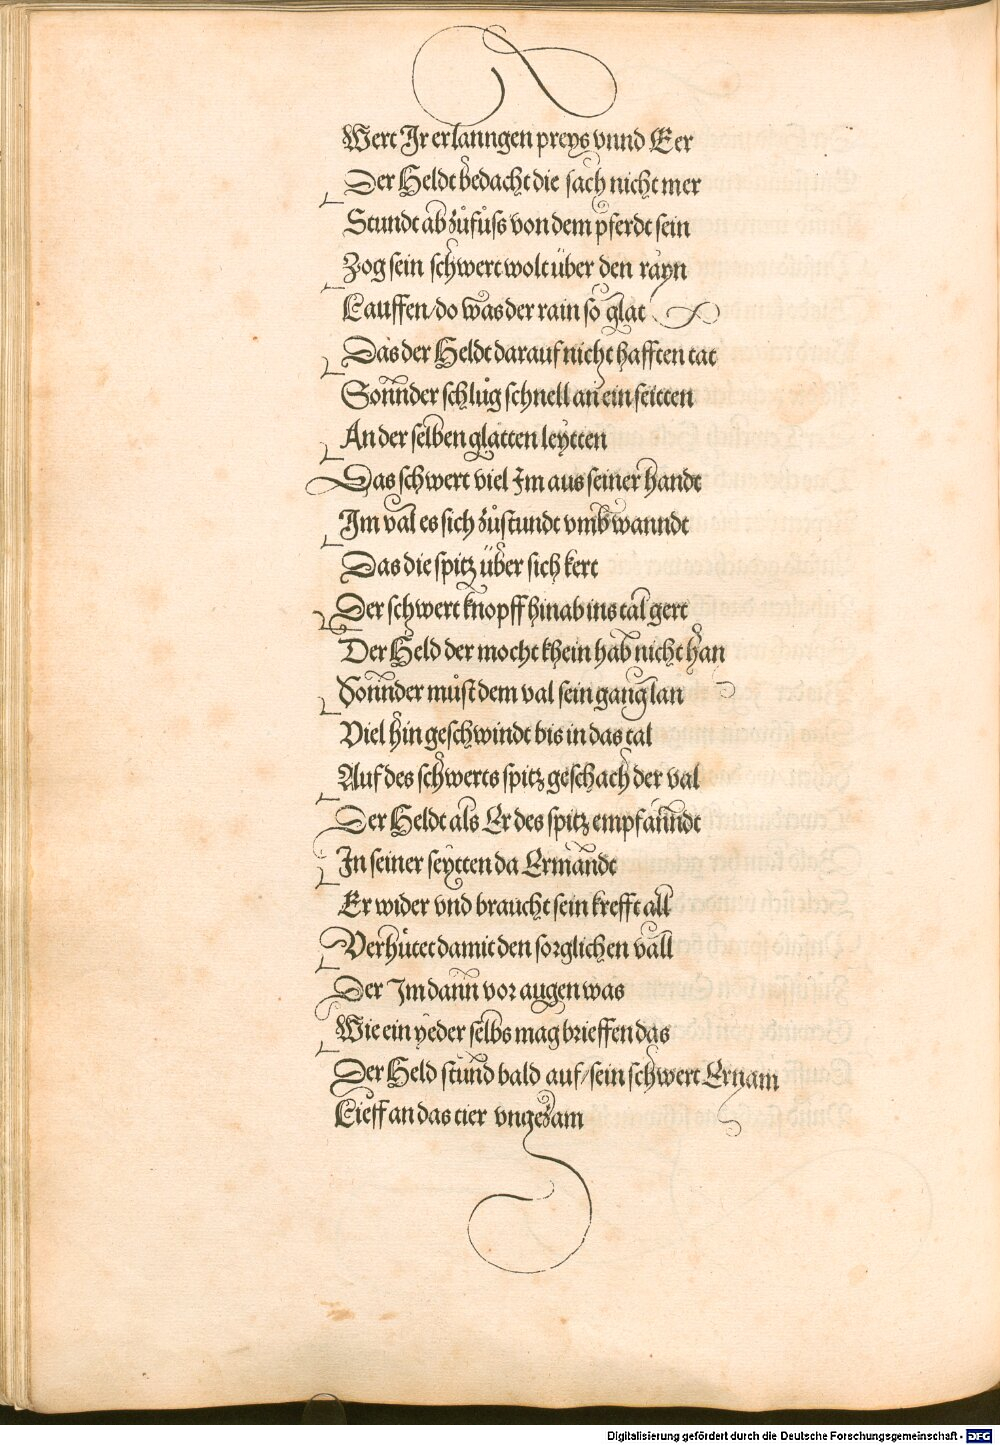 Wert Ir erlanngen preys vnnd Eer
Der Heldt bedacht die sach nicht mer
Stundt ab zůfůss von dem pferdt sein
Zog sein schwert wolt über den rayn
Lauffen/do was der rain so glat
Das der Heldt darauf nicht hafften tat
Sonnder schlůg schnell an ein seitten
An der selben glatten leytten
Das schwert viel Im aus seiner handt
Im val es sich zůstundt vmbwanndt
Das die spitz über sich kert
Der schwert knopff hinab ins tal gert
Der Held der mocht khein hab nicht han
Sonnder můst dem val sein gang lan
Viel hin geschwindt bis in das tal
Auf des schwerts spitz geschach der val
Der Heldt als Er des spitz empfanndt
In seiner seytten da Ermandt
Er wider vnd braucht sein krefft all
Verhůtet damit den sorglichen vall
Der Im dann vor augen was
Wie ein yeder selbs mag brieffen das
Der Held stůnd bald auf/sein schwert Er nam
Lieff an das tier vngezam
Digitalisierung gefördert durch die Deutsche Forschungsgemeinschaft - DFG